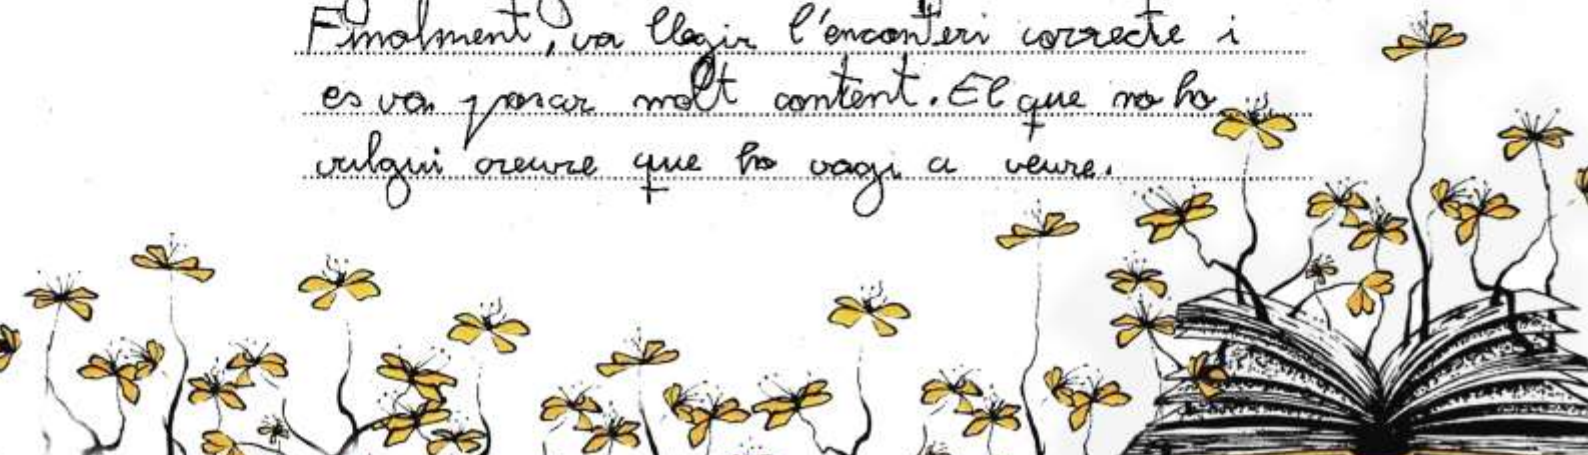 Finalment, va llegir l'encanteri correcte i
es va posar molt content. El que no ho
vulgui creure que ho vagi a veure.